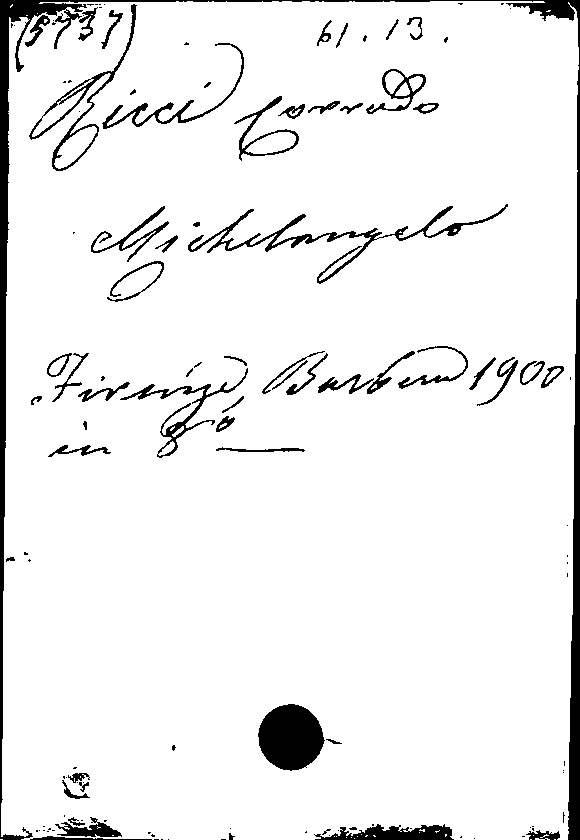 (5737) 61.13.
Ricci Corrado
Michelangelo
Firenze, Barbera 1900
in 8° —